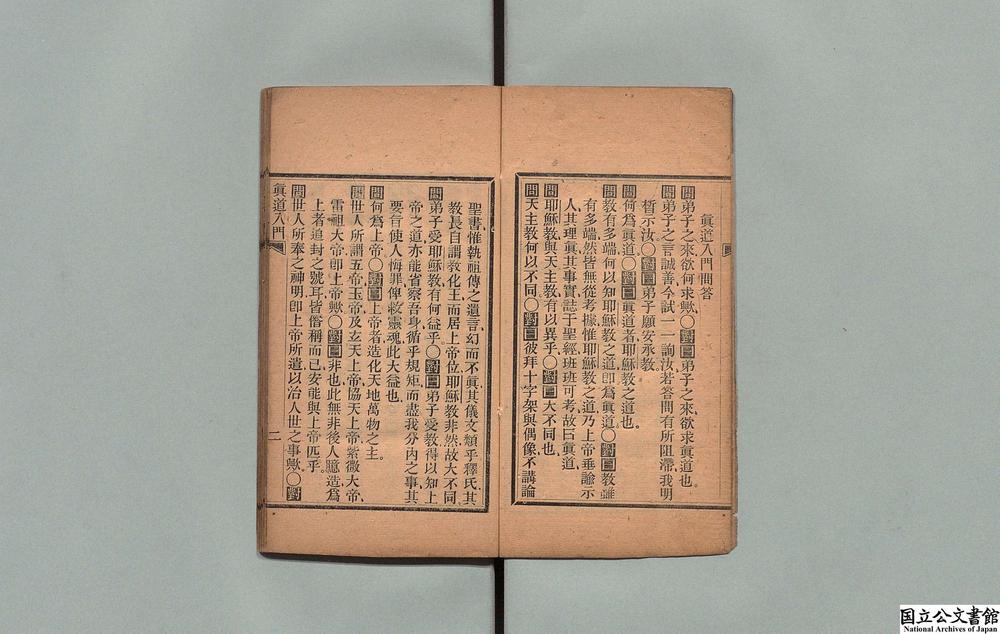 眞道入門問答
問弟子之來欲何求歟○對曰弟子之來欲求眞道也
問弟子之言誠善今試一一詢汝若答問有所阻滯我明
暫示汝○對曰弟子願安承教
問何爲眞道○對曰眞道者耶穌教之道也
問教有多端何以知耶穌教之道卽爲眞道○對曰教雖
有多端然皆無從考據惟耶穌教之道乃上帝垂諭示
人其理眞其事實誌于聖經班班可考故曰眞道
問耶穌教與天主教有以異乎○對曰大不同也
問天主教何以不同○對曰彼拜十字架與偶像不講論
聖書惟執祖傳之遺言幻而不眞其儀文類乎釋氏其
教長自謂教化王而居上帝位耶穌教非然故大不同
問弟子受耶穌教有何益乎○對曰弟子受教得以知上
帝之道亦能省察吾身循乎規矩而盡我分內之事其
要旨使人悔罪俾救靈魂此大益也
問何爲上帝○對曰上帝者造化天地萬物之主
問世人所謂五帝玉帝及玄天上帝協天上帝紫微大帝
雷祖大帝卽上帝歟○對曰非也此無非後人臆造爲
上者追封之號耳皆僭稱而已安能與上帝匹乎
問世人所奉之神明卽上帝所遣以治人世之事歟○對
眞道入門
二
国立公文書館
National Archives of Japan